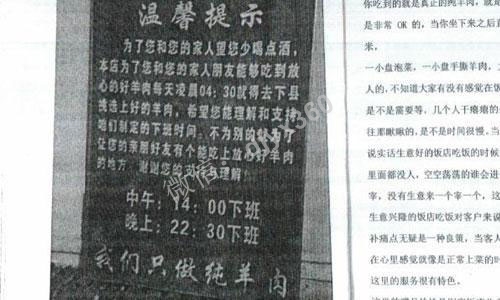 温馨提示
为了您和您的家人望您少喝点酒,
本店为了您和您的家人朋友能够吃到放
心的好羊肉每天凌晨04:30就得去下县
挑选上好的羊肉,希望您能理解和支持
咱们制定的下班时间,不为别的就为了
让您的亲朋好友有个能吃上放心好羊肉
的地方,谢谢您的
理解!
中午:14:00下班
晚上:22:30下班
我们只做纯羊肉
微信
你吃到的就是真正的纯羊肉,就
是非常 OK 的,当你坐下来之后
米,
一小盘泡菜,一小盘手撕羊肉,
人的,不知道大家有没有感觉在饭
是不是需要等,几个人干瘪瘪的
往那瞅瞅的,是不是时间很慢,当
说实话生意好的饭店吃饭的时候
里面都没人,空空荡荡的谁会进
宰,没有生意来一个宰一个,这
生意兴隆的饭店吃饭对客户来说
补痛点无疑是一种良策,当客人
在心里感觉就像是正常上菜的时
这里的服务很有特色。